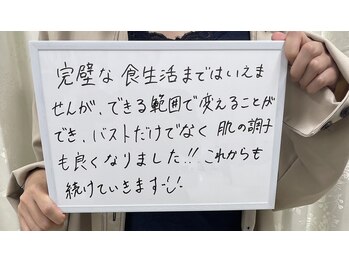 完璧な食生活まではいえま
せんが、できる範囲で変えることが
でき、バストだけでなく肌の調子
も良くなりました!! これからも
続けていきます!